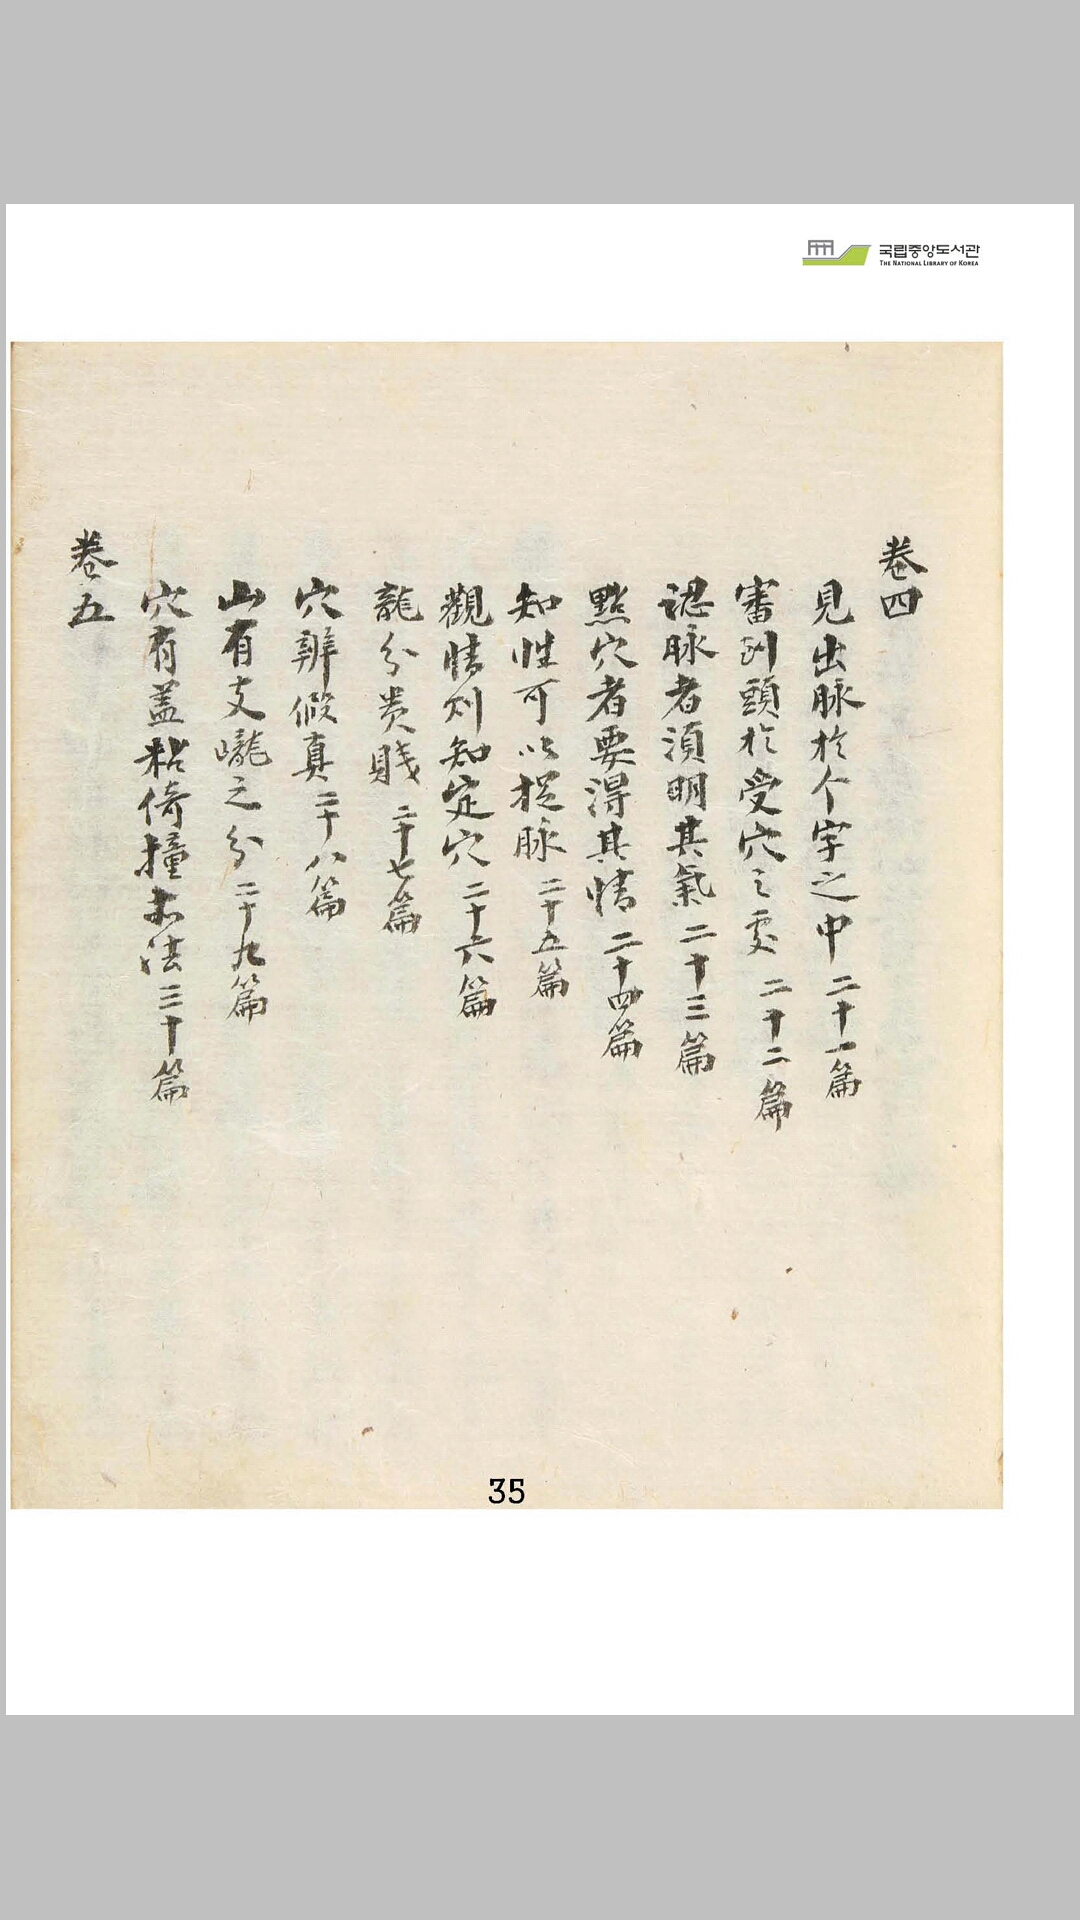 국립중앙도서관
THE NATIONAL LIBRARY OF KOREA
卷四
見出脉於个字之中 二十一篇
審到頭於受穴之處 二十二篇
認脉者須明其氣 二十三篇
點穴者要得其情 二十四篇
知性可以捉脉 二十五篇
觀情則知定穴 二十六篇
龍分贵賤 二十七篇
穴辨假真 二十八篇
山有支巃之分 二十九篇
穴有盖粘倚撞之法 三十篇
卷五
35